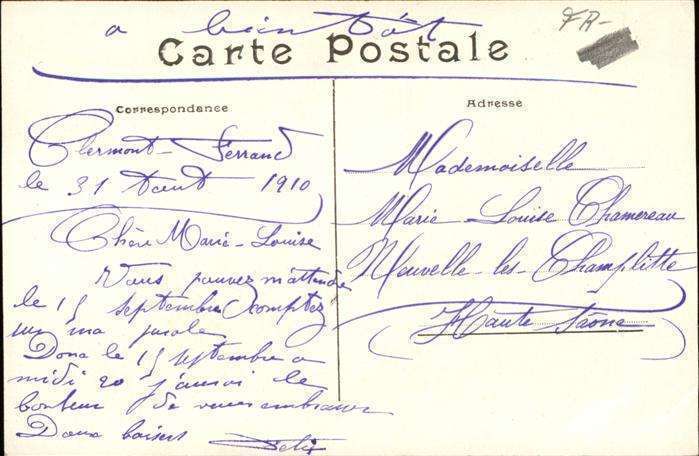 a bientôt
FR-
Carte Postale
Correspondance
Clermont-Ferrand
le 31 Aout 1910
Chère Marie-Louise
Vous pouvez m'attendre
le 15 septembre comptez
sur ma parole
Donc le 15 septembre a
midi 20 j'aurai le
bonheur de vous embrasser
Doux baisers Felix
Adresse
Mademoiselle
Marie Louise Chamereau
Neuvelle-les-Champlitte
Haute Saône